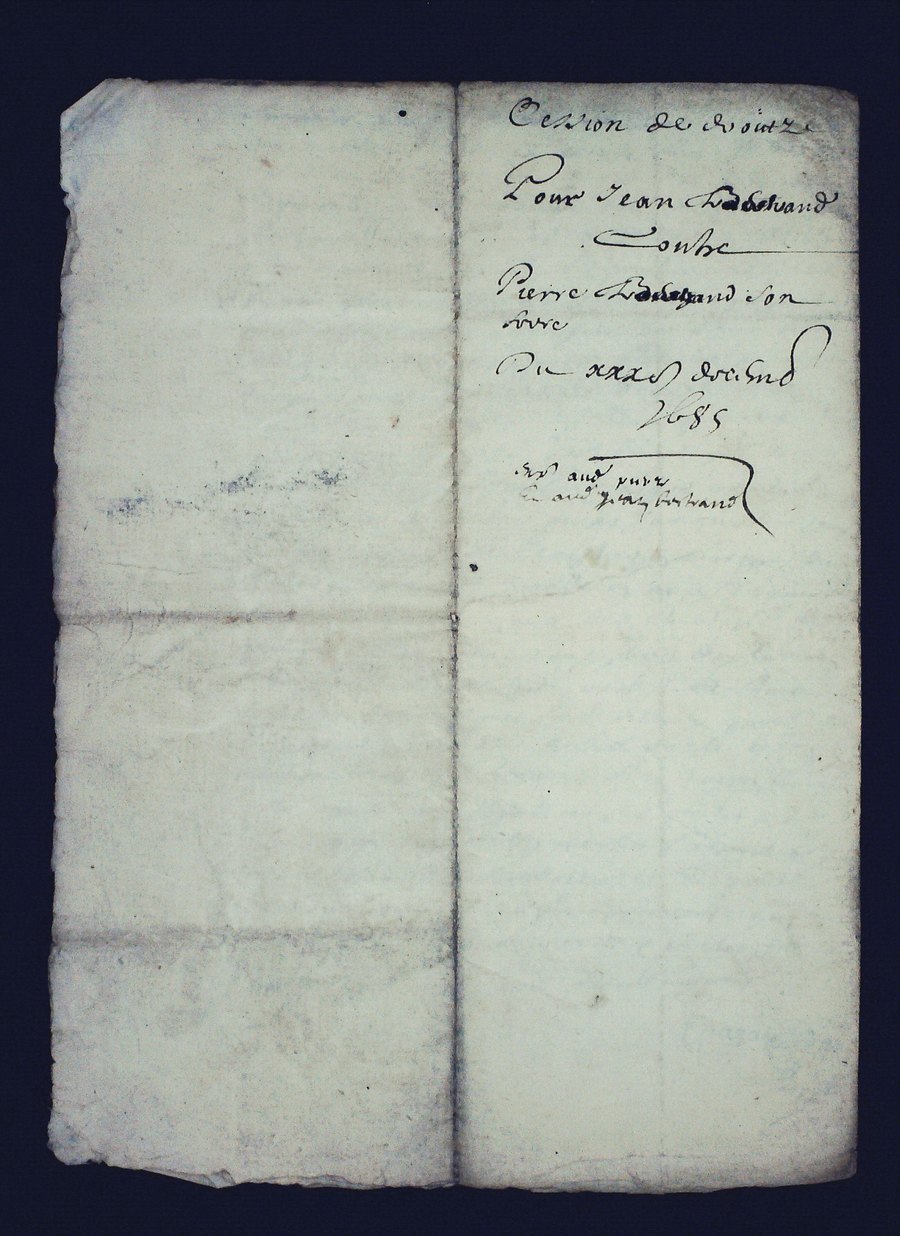 Cession de droitz
Pour Jean Bertrand
Contre
Pierre Bertrand son
frere
Du xxxe decemb
1685
aud
aud Jean bertrand